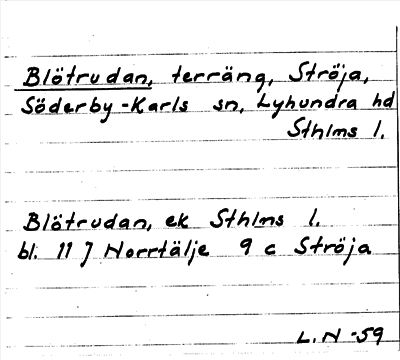 Blötrudan, terräng, Ströja,
Söderby-Karls sn, Lyhundra hd
Sthlms l.
Blötrudan, ek Sthlms l.
bl. 11 J Norrtälje 9 c Ströja
L.N -59